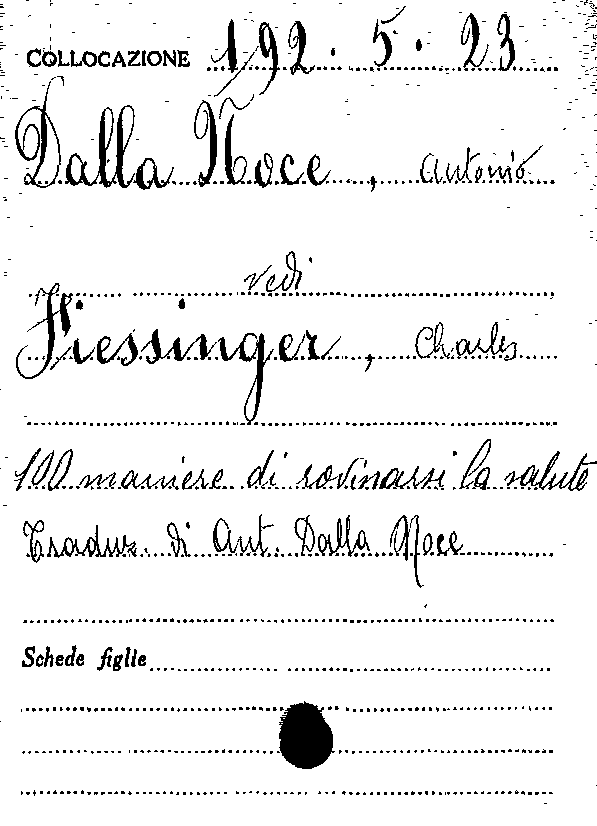 COLLOCAZIONE 192. 5. 23
Dalla Noce, Antonio
vedi
Fiessinger, Charles
100 maniere di rovinarsi la salute
Traduz. di Ant. Dalla Noce
Schede figlie